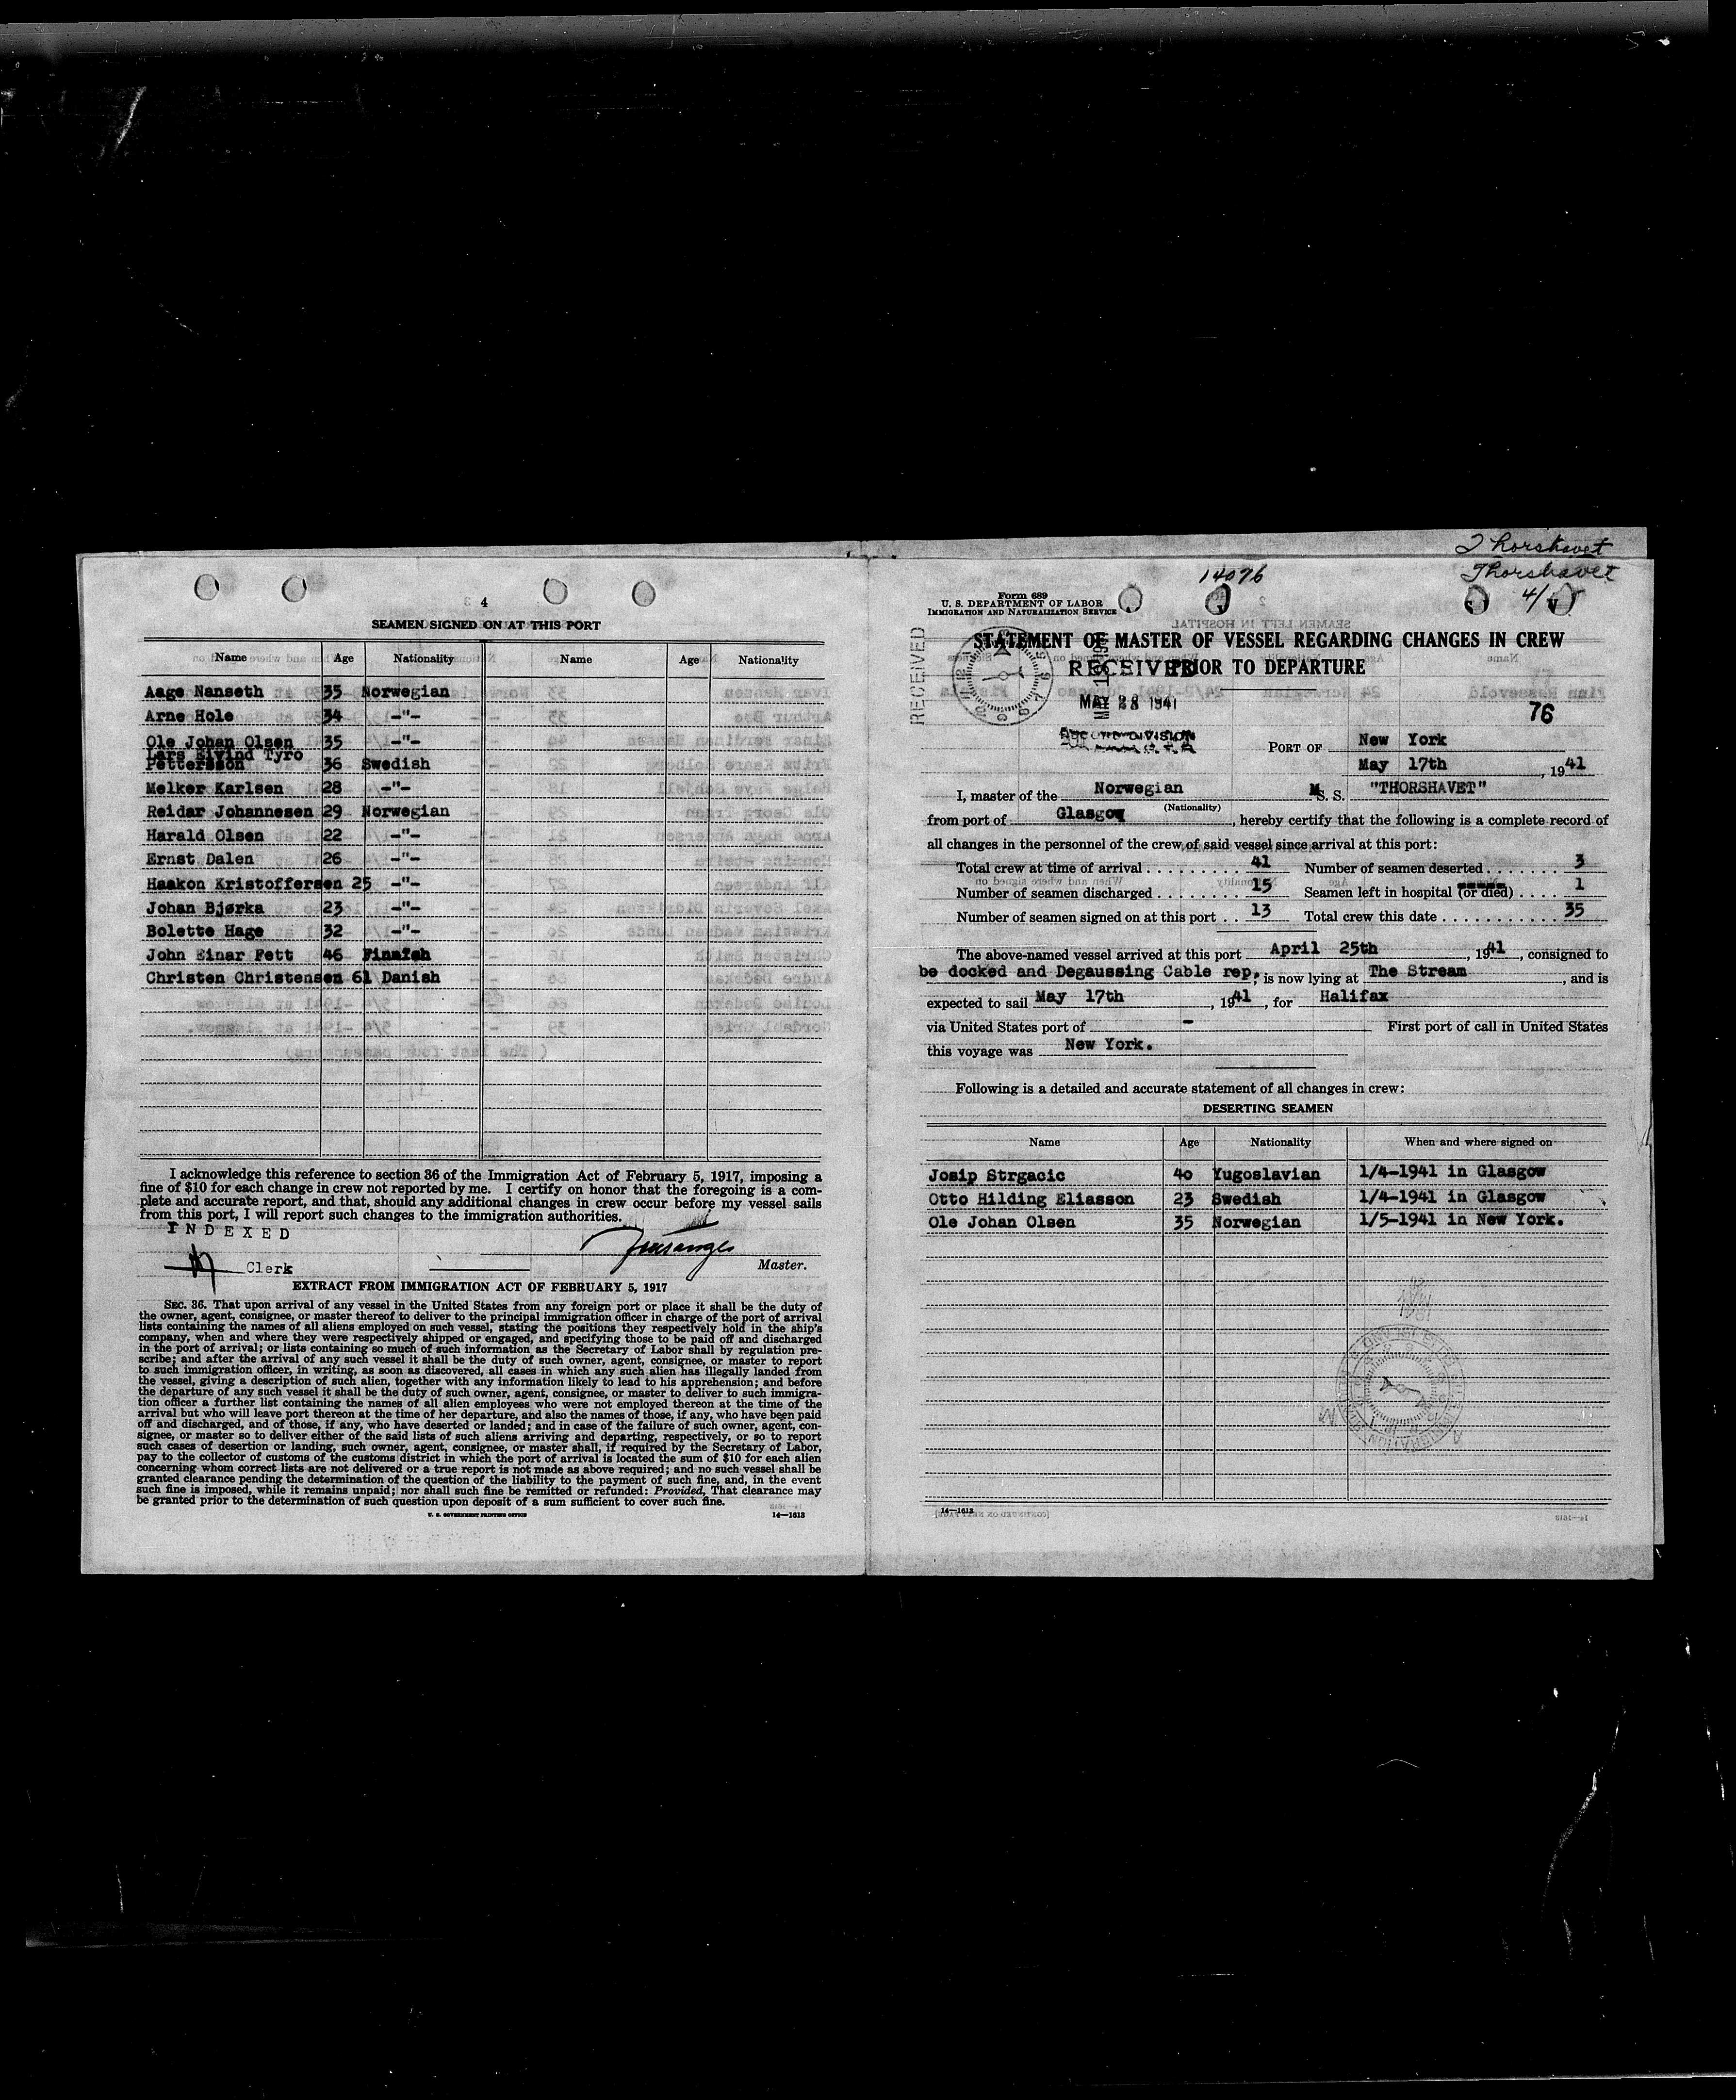 4
SEAMEN SIGNED ON AT THIS PORT
Name Age Nationality Name Age Nationality
Aage Nanseth 35 Norwegian
Arne Hole 34 -"-
Ole Johan Olsen 35 -"-
Lars Eivind Tyro
Pettersson 36 Swedish
Melker Karlsen 28 -"-
Reidar Johannesen 29 Norwegian
Harald Olsen 22 -"-
Ernst Dalen 26 -"-
Haakon Kristoffersen 25 -"-
Johan Bjørka 23 -"-
Bolette Hage 32 -"-
John Einar Fett 46 Finnish
Christen Christensen 61 Danish
I acknowledge this reference to section 36 of the Immigration Act of February 5, 1917, imposing a
fine of $10 for each change in crew not reported by me. I certify on honor that the foregoing is a com-
plete and accurate report, and that, should any additional changes in crew occur before my vessel sails
from this port, I will report such changes to the immigration authorities.
INDEXED
Clerk
Master.
EXTRACT FROM IMMIGRATION ACT OF FEBRUARY 5, 1917
SEC. 36. That upon arrival of any vessel in the United States from any foreign port or place it shall be the duty of
the owner, agent, consignee, or master thereof to deliver to the principal immigration officer in charge of the port of arrival
lists containing the names of all aliens employed on such vessel, stating the positions they respectively hold in the ship's
company, when and where they were respectively shipped or engaged, and specifying those to be paid off and discharged
in the port of arrival; or lists containing so much of such information as the Secretary of Labor shall by regulation pre-
scribe; and after the arrival of any such vessel it shall be the duty of such owner, agent, consignee, or master to report
to such immigration officer, in writing, as soon as discovered, all cases in which any such alien has illegally landed from
the vessel, giving a description of such alien, together with any information likely to lead to his apprehension; and before
the departure of any such vessel it shall be the duty of such owner, agent, consignee, or master to deliver to such immigra-
tion officer a further list containing the names of all alien employees who were not employed thereon at the time of the
arrival but who will leave port thereon at the time of her departure, and also the names of those, if any, who have been paid
off and discharged, and of those, if any, who have deserted or landed; and in case of the failure of such owner, agent, con-
signee, or master so to deliver either of the said lists of such aliens arriving and departing, respectively, or so to report
such cases of desertion or landing, such owner, agent, consignee, or master shall, if required by the Secretary of Labor,
pay to the collector of customs of the customs district in which the port of arrival is located the sum of $10 for each alien
concerning whom correct lists are not delivered or a true report is not made as above required; and no such vessel shall be
granted clearance pending the determination of the question of the liability to the payment of such fine, and, in the event
such fine is imposed, while it remains unpaid; nor shall such fine be remitted or refunded: Provided, That clearance may
be granted prior to the determination of such question upon deposit of a sum sufficient to cover such fine.
U. S. GOVERNMENT PRINTING OFFICE 14—1613
Thorshavet
Thorshavet
14076
4/
Form 689
U. S. DEPARTMENT OF LABOR
IMMIGRATION AND NATURALIZATION SERVICE
RECEIVED
STATEMENT OF MASTER OF VESSEL REGARDING CHANGES IN CREW
PRIOR TO DEPARTURE
RECEIVED
MAY 28 1941
76
PORT OF New York
May 17th, 1941
I, master of the Norwegian M S. S. "THORSHAVET"
(Nationality)
from port of Glasgow, hereby certify that the following is a complete record of
all changes in the personnel of the crew of said vessel since arrival at this port:
Total crew at time of arrival 41 Number of seamen deserted 3
Number of seamen discharged 15 Seamen left in hospital (or died) 1
Number of seamen signed on at this port 13 Total crew this date 35
The above-named vessel arrived at this port April 25th, 1941, consigned to
be docked and Degaussing Cable rep.; is now lying at The Stream, and is
expected to sail May 17th, 1941, for Halifax
via United States port of - First port of call in United States
this voyage was New York.
Following is a detailed and accurate statement of all changes in crew:
DESERTING SEAMEN
Name Age Nationality When and where signed on
Josip Strgacic 40 Yugoslavian 1/4-1941 in Glasgow
Otto Hilding Eliasson 23 Swedish 1/4-1941 in Glasgow
Ole Johan Olsen 35 Norwegian 1/5-1941 in New York.
14—1613